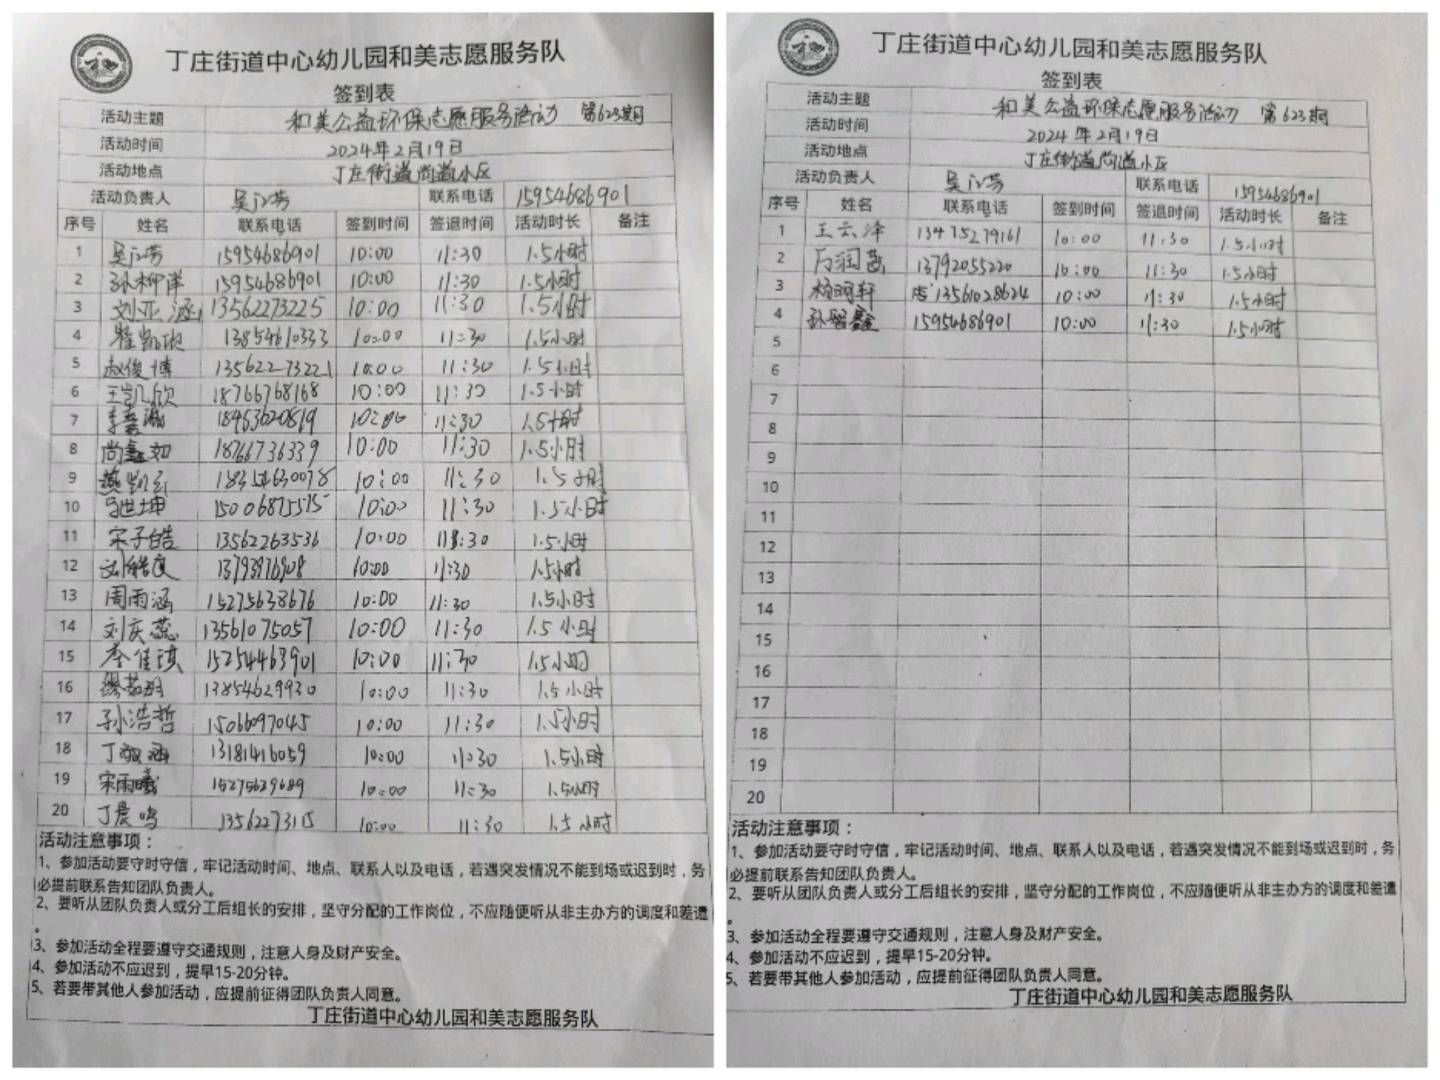 丁庄街道中心幼儿园和美志愿服务队
签到表
活动主题 和美公益环保志愿服务活动 第623期
活动时间 2024年2月19日
活动地点 丁庄街道尚道小区
活动负责人 吴江芳 联系电话 15954686901
序号 姓名 联系电话 签到时间 签退时间 活动时长 备注
1 吴江芳 15954686901 10:00 11:30 1.5小时
2 孙柳洋 15954686901 10:00 11:30 1.5小时
3 刘亚涵 13562273225 10:00 11:30 1.5小时
4 崔凯 13854610333 10:00 11:30 1.5小时
5 赵俊博 13562273221 10:00 11:30 1.5小时
6 王凯欣 18766768168 10:00 11:30 1.5小时
7 李 18453620819 10:00 11:30 1.5小时
8 尚鑫如 18766736339 10:00 11:30 1.5小时
9 燕凯 18354630078 10:00 11:30 1.5小时
10 马世坤 15006875575 10:00 11:30 1.5小时
11 宋子皓 13562263536 10:00 11:30 1.5小时
12 刘皓良 13793876908 10:00 11:30 1.5小时
13 周雨涵 15275638676 10:00 11:30 1.5小时
14 刘庆蕊 13561075057 10:00 11:30 1.5小时
15 佳琪 15254463901 10:00 11:30 1.5小时
16 13854629930 10:00 11:30 1.5小时
17 孙浩哲 15066097045 10:00 11:30 1.5小时
18 丁 涵 13181416059 10:00 11:30 1.5小时
19 宋雨曦 15275639689 10:00 11:30 1.5小时
20 丁晨鸣 13562273115 10:00 11:30 1.5小时
活动注意事项：
1、参加活动要守时守信，牢记活动时间、地点、联系人以及电话，若遇突发情况不能到场或迟到时，务
必提前联系告知团队负责人。
2、要听从团队负责人或分工后组长的安排，坚守分配的工作岗位，不应随便听从非主办方的调度和差遣
。
3、参加活动全程要遵守交通规则，注意人身及财产安全。
4、参加活动不应迟到，提早15-20分钟。
5、若要带其他人参加活动，应提前征得团队负责人同意。
丁庄街道中心幼儿园和美志愿服务队
丁庄街道中心幼儿园和美志愿服务队
签到表
活动主题 和美公益环保志愿服务活动 第623期
活动时间 2024年2月19日
活动地点 丁庄街道尚道小区
活动负责人 吴江芳 联系电话 15954686901
序号 姓名 联系电话 签到时间 签退时间 活动时长 备注
1 王云泽 13475279161 10:00 11:30 1.5小时
2 万润 13792055220 10:00 11:30 1.5小时
3 杨明轩 13561028624 10:00 11:30 1.5小时
4 孙 鑫 15954686901 10:00 11:30 1.5小时
5
6
7
8
9
10
11
12
13
14
15
16
17
18
19
20
活动注意事项：
1、参加活动要守时守信，牢记活动时间、地点、联系人以及电话，若遇突发情况不能到场或迟到时，务
必提前联系告知团队负责人。
2、要听从团队负责人或分工后组长的安排，坚守分配的工作岗位，不应随便听从非主办方的调度和差遣
。
3、参加活动全程要遵守交通规则，注意人身及财产安全。
4、参加活动不应迟到，提早15-20分钟。
5、若要带其他人参加活动，应提前征得团队负责人同意。
丁庄街道中心幼儿园和美志愿服务队